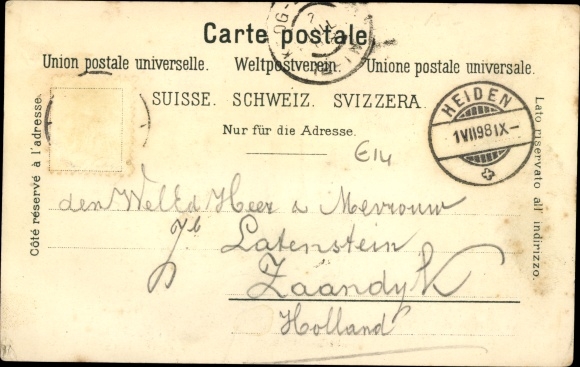 Carte postale.
Union postale universelle. Weltpostverein. Unione postale universale.
SUISSE. SCHWEIZ. SVIZZERA.
Nur für die Adresse.
Côté réservé à l'adresse.
Lato riservato all' indirizzo.
HEIDEN
1VII98IX-
E14
den WelEd Heer & Mevrouw
Jb Latenstein
Zaandyk
Holland